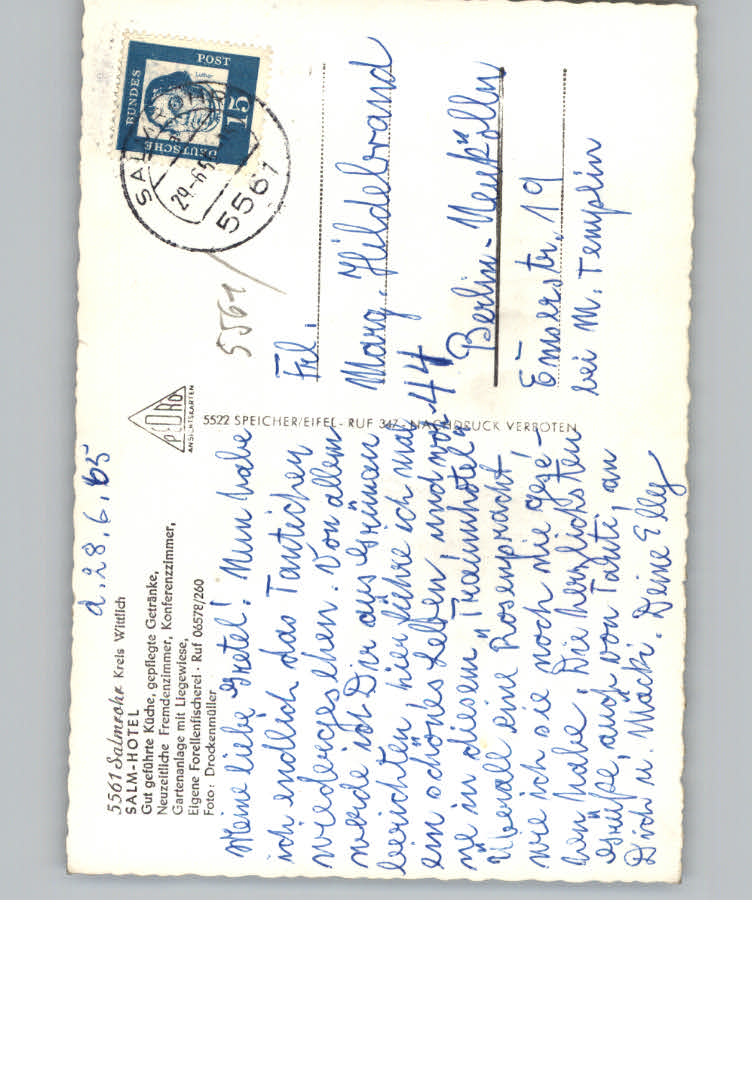 d. 28.6.65
5561 Salmrohr Kreis Wittlich
SALM-HOTEL
Gut geführte Küche, gepflegte Getränke,
Neuzeitliche Fremdenzimmer, Konferenzzimmer,
Gartenanlage mit Liegewiese,
Eigene Forellenfischerei · Ruf 06578/260
Foto: Drockenmüller
Meine liebe Gretel! Nun habe
ich endlich das Tantchen
wiedergesehen. Von allem
werde ich Dir aus Grünau
berichten hier führe ich mal
ein schönes Leben und
in diesem „Traumhotel"
Überall eine Rosenpracht
wie ich sie noch nie gese-
hen habe. Die herzlichsten
Grüße, auch von Tanti, an
Dich u. Mäcki. Deine Elly
PEDRO
ANSICHTSKARTEN
5522 SPEICHER/EIFEL - RUF 347 - NACHDRUCK VERBOTEN
DEUTSCHE
BUNDES
POST
15
Luther
SALMROHR
29.-6.65
5561
5561
Frl.
Marg. Hildebrand
44 Berlin-Neukölln
Emserstr. 19
bei M. Templin